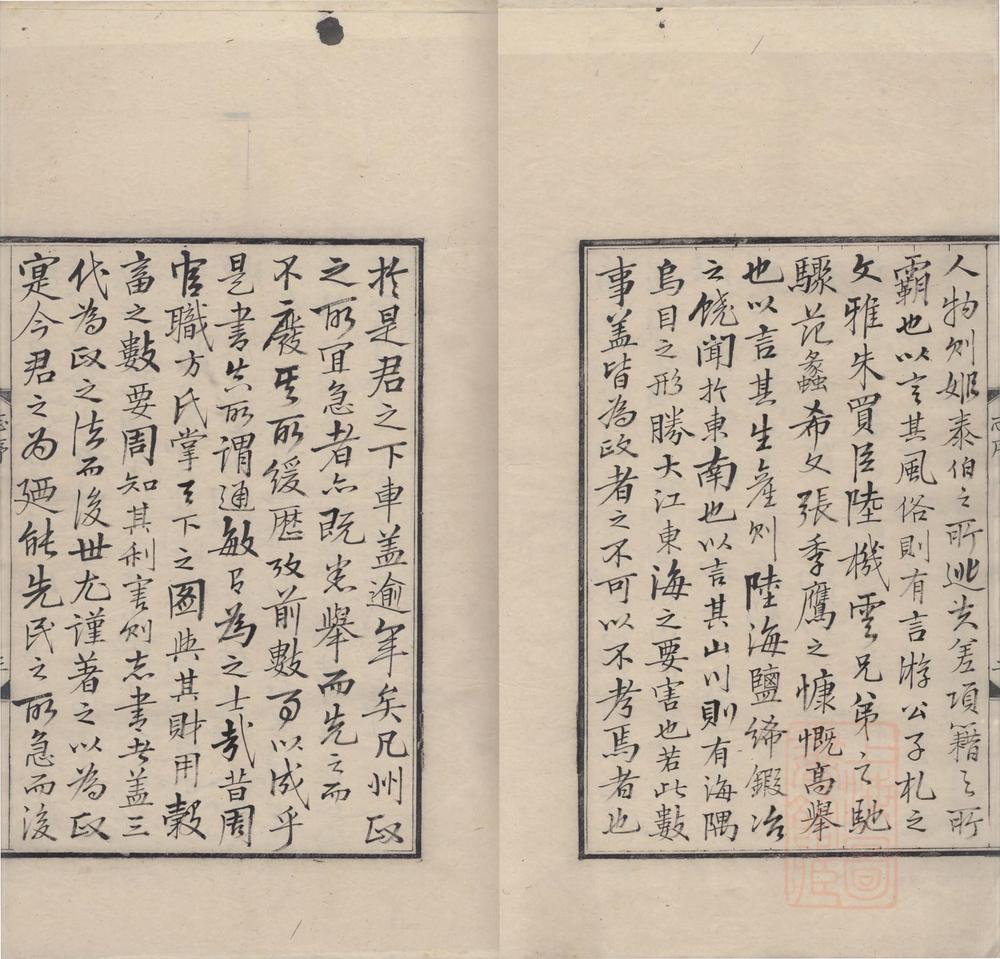 人物則姬泰伯之所逃夫差項籍之所
霸也以言其風俗則有言游公子札之
文雅朱買臣陸機雲兄弟之馳
驟范蠡希文張季鷹之慷慨高舉
也以言其生産則陸海鹽綈鍜冶
之饒聞於東南也以言其山川則有海隅
烏目之形勝大江東海之要害也若此數
事盖皆為政者之不可以不考焉者也
於是君之下車盖逾年矣凡州政
之所宜急者亦既悉舉而先之而
不廢其所緩歷攷前數百以成乎
是書豈所謂通敏有為之士哉昔周
官職方氏掌天下之圖與其財用穀
畜之數要周知其利害則志書者盖三
代為政之法而後世尤謹著之以為政
寔今君之為廼能先民之所急而後
志序
三